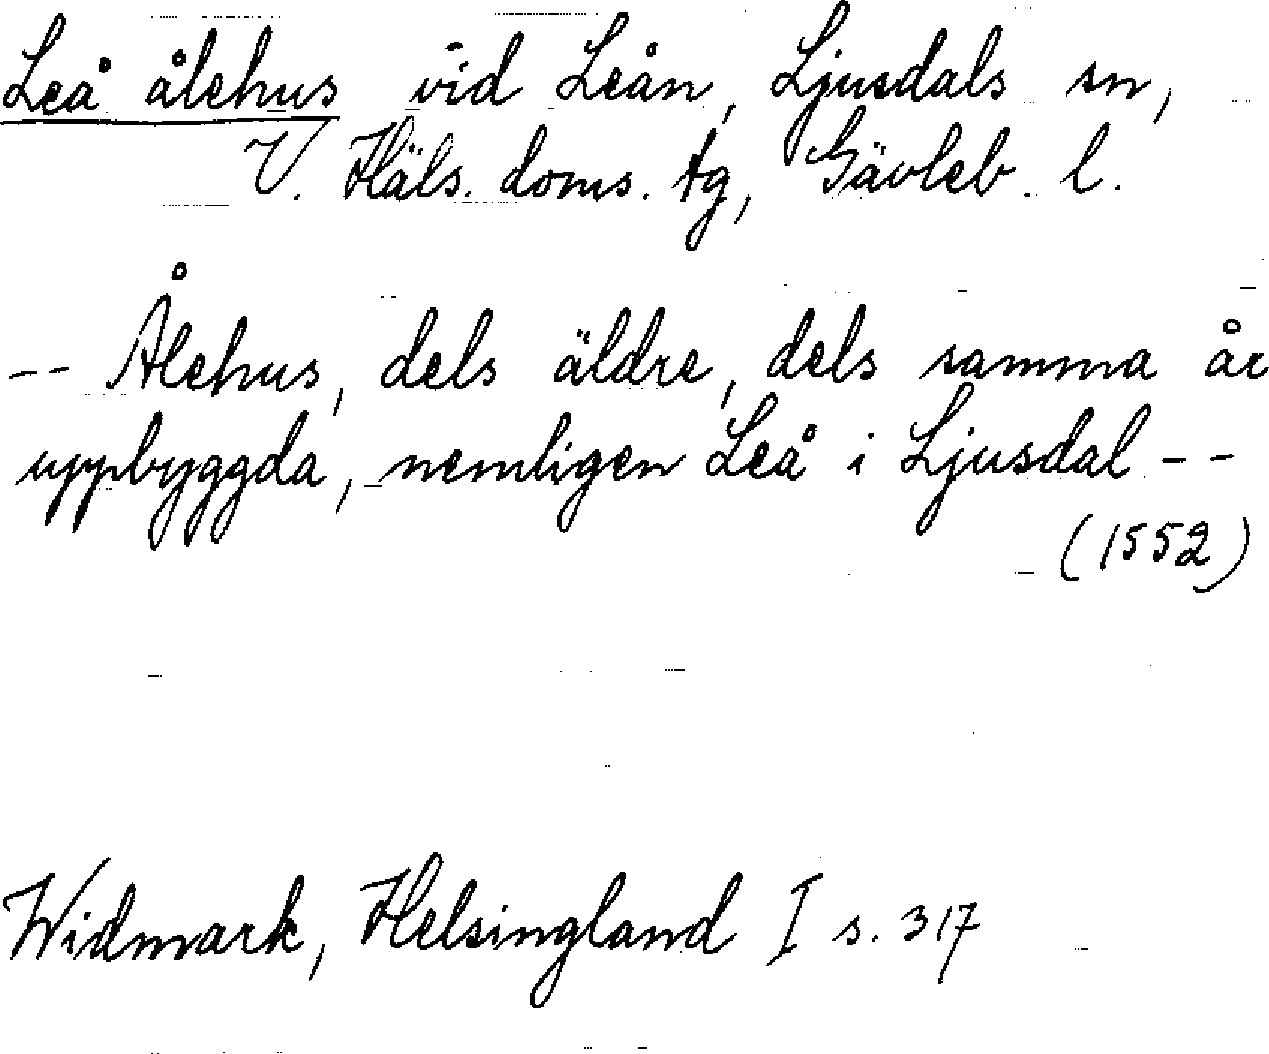 Leå ålehus vid Leån, Ljusdals sn,
V. Häls. doms. tg, Gävleb. l.
-- Ålehus, dels äldre, dels samma år
uppbyggda, nemligen Leå i Ljusdal --
(1552)
Widmark, Helsingland I s. 317